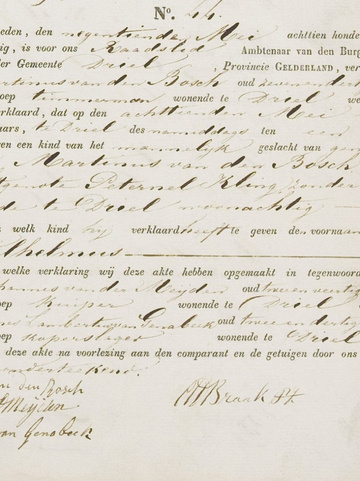 N°. 
eden, den negentiende Mei achttien honde
ig, is voor ons Raadslid Ambtenaar van den Burg
er Gemeente Driel, Provincie GELDERLAND, ver
rtinus van den Bosch oud zevenender
oep timmerman wonende te Driel we
erklaard, dat op den achttienden Mei
aars, te Driel des namiddags ten een
en een kind van het mannelijk geslacht van
Martinus van den Bosch
tgenote Peternel Kling zonder
de te Driel woonachtig
n welk kind hij verklaard heeft te geven den voornaam
lhelmus
welke verklaring wij deze akte hebben opgemaakt in tegenwoor
hannes van der Meijden oud tweeenveertig
ep Kuiper wonende te Driel
Lambertus van Genabeek oud twee en dertig
ep wonende te Driel
deze akte na voorlezing aan den comparant en de getuigen door ons
eonderteekend.
van den Bosch
Meijden
van Genabeek